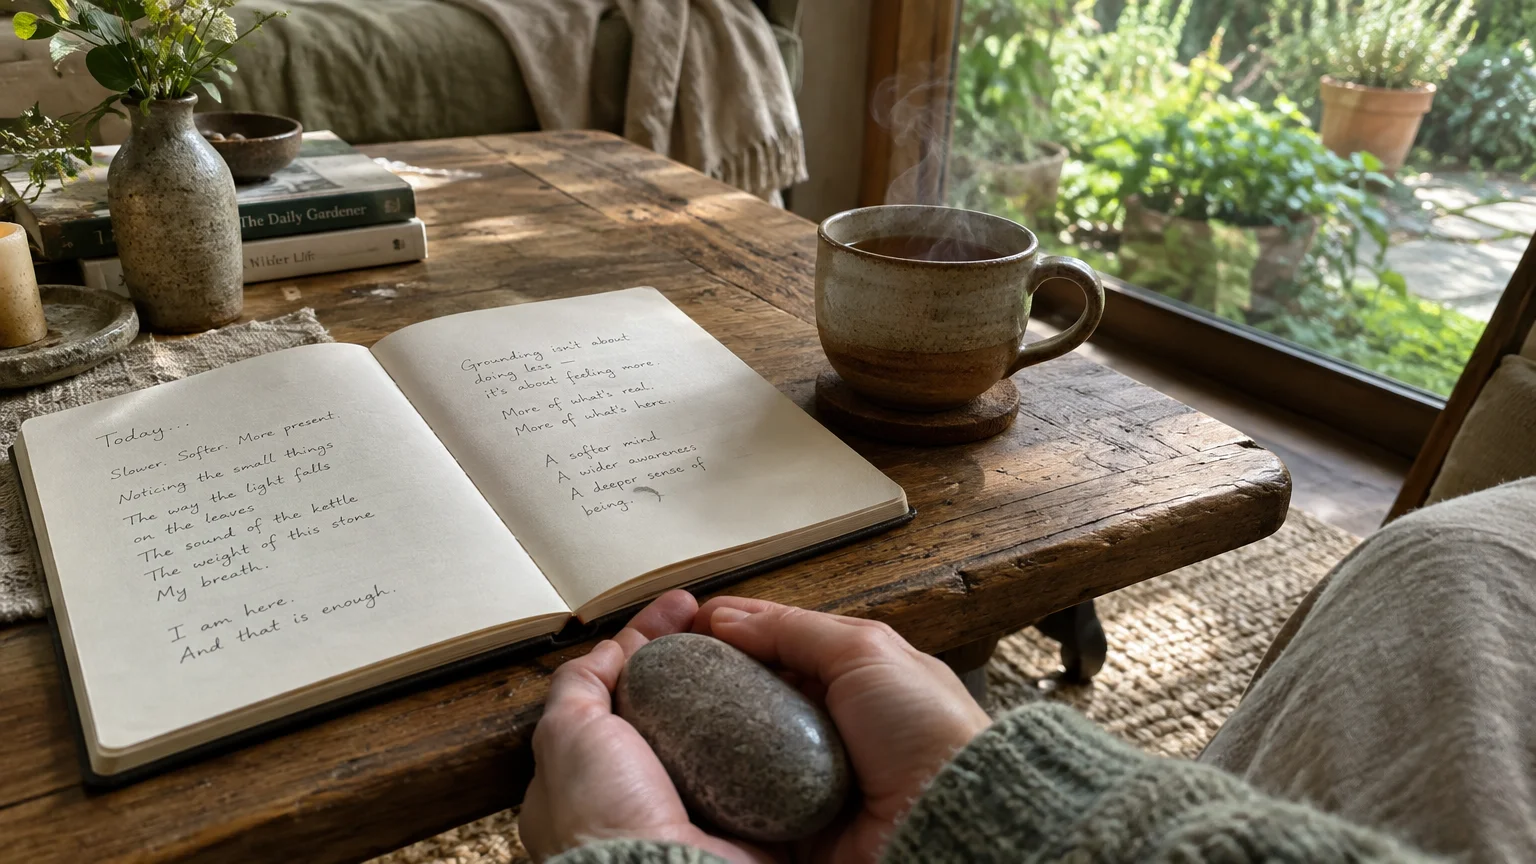 Today...
Slower. Softer. More present.
Noticing the small things
The way the light falls
on the leaves
The sound of the kettle
The weight of this stone
My breath.
I am here.
And that is enough.
Grounding isn't about
doing less —
it's about feeling more.
More of what's real.
More of what's here.
A softer mind
A wider awareness
A deeper sense of
being.
The Daily Gardener